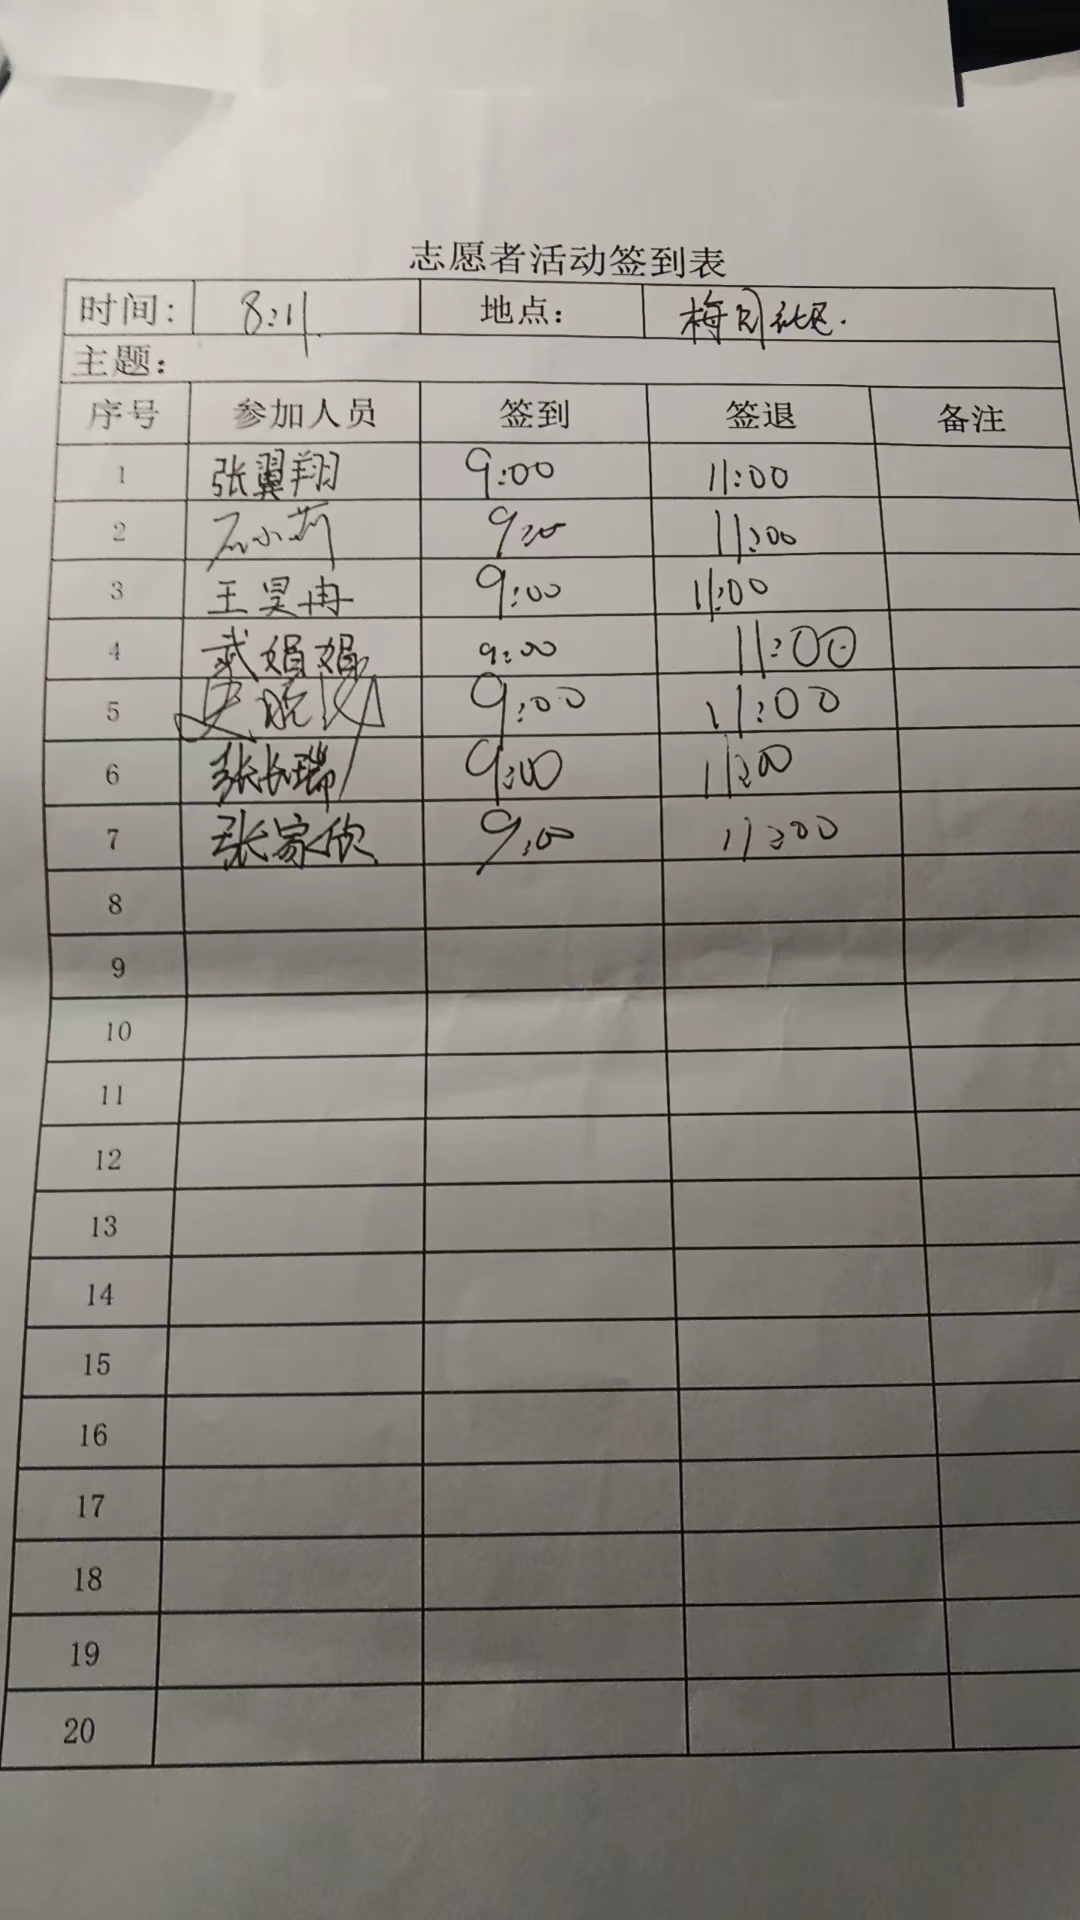 志愿者活动签到表
时间: 8.11. 地点: 梅园社区.
主题:
序号 参加人员 签到 签退 备注
1 张翼翔 9:00 11:00
2 石小莉 9:00 11:00
3 王昊冉 9:00 11:00
4 武娟娟 9:00 11:00
5 9:00 11:00
6 张长瑞 9:00 11:00
7 张家欣 9:00 11:00
8
9
10
11
12
13
14
15
16
17
18
19
20